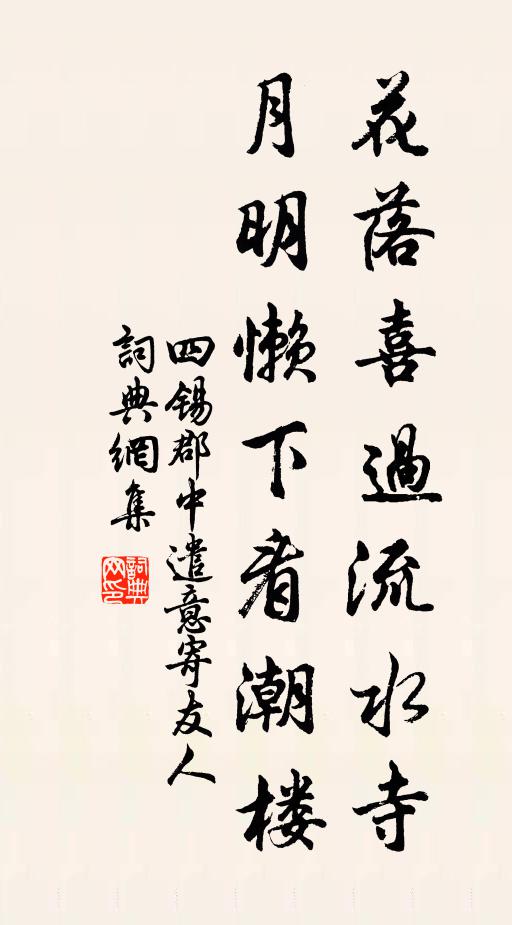 花落喜過流水寺
月明懒下看潮楼
四锡郡中遣意寄友人
詞典網集
詞典网印